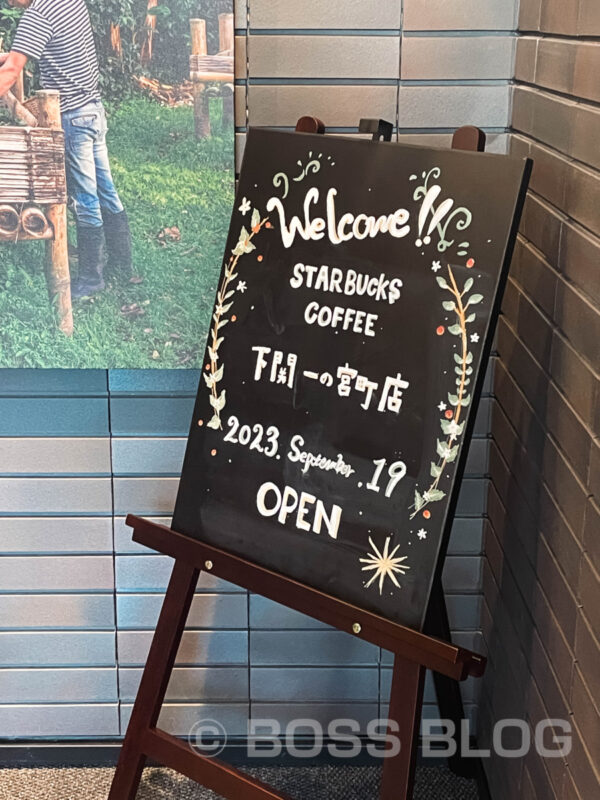 Welcome!!
STARBUCKS
COFFEE
下関一の宮町店
2023. September. 19
OPEN
© BOSS BLOG